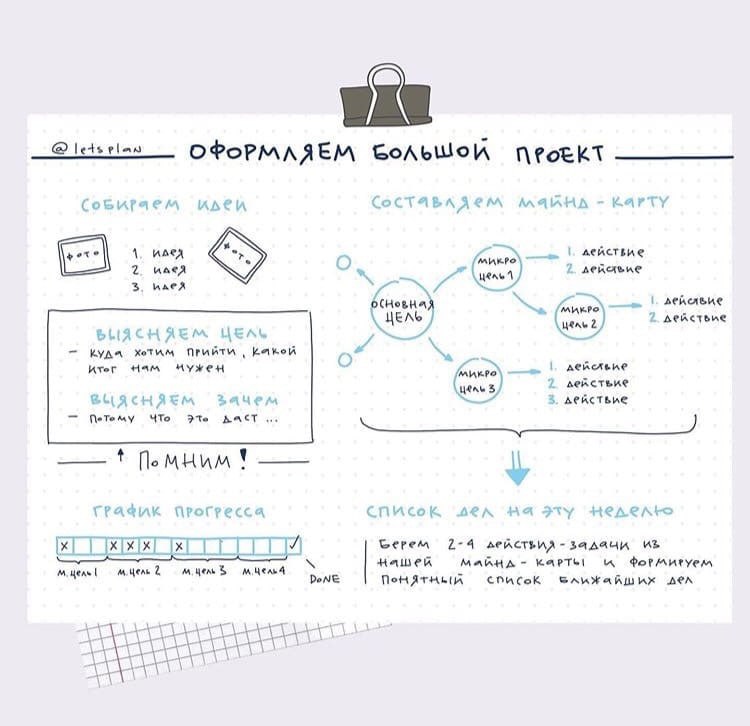 @letsplan
ОФОРМЛЯЕМ БОЛЬШОЙ ПРОЕКТ
СОБИРАЕМ ИДЕИ
ФОТО
1. ИДЕЯ
2. ИДЕЯ
3. ИДЕЯ
ФОТО
ВЫЯСНЯЕМ ЦЕЛЬ
- КУДА ХОТИМ ПРИЙТИ, КАКОЙ
ИТОГ НАМ НУЖЕН
ВЫЯСНЯЕМ ЗАЧЕМ
- ПОТОМУ ЧТО ЭТО ДАСТ ...
↑ ПОМНИМ!
СОСТАВЛЯЕМ МАЙНД-КАРТУ
ОСНОВНАЯ
ЦЕЛЬ
МИКРО
ЦЕЛЬ 1
1. ДЕЙСТВИЕ
2. ДЕЙСТВИЕ
МИКРО
ЦЕЛЬ 2
1. ДЕЙСТВИЕ
2. ДЕЙСТВИЕ
МИКРО
ЦЕЛЬ 3
1. ДЕЙСТВИЕ
2. ДЕЙСТВИЕ
3. ДЕЙСТВИЕ
ГРАФИК ПРОГРЕССА
X X X X X ✓
М.ЦЕЛЬ 1 М.ЦЕЛЬ 2 М.ЦЕЛЬ 3 М.ЦЕЛЬ 4
DONE
СПИСОК ДЕЛ НА ЭТУ НЕДЕЛЮ
БЕРЕМ 2-4 ДЕЙСТВИЯ-ЗАДАЧИ ИЗ
НАШЕЙ МАЙНД-КАРТЫ И ФОРМИРУЕМ
ПОНЯТНЫЙ СПИСОК БЛИЖАЙШИХ ДЕЛ